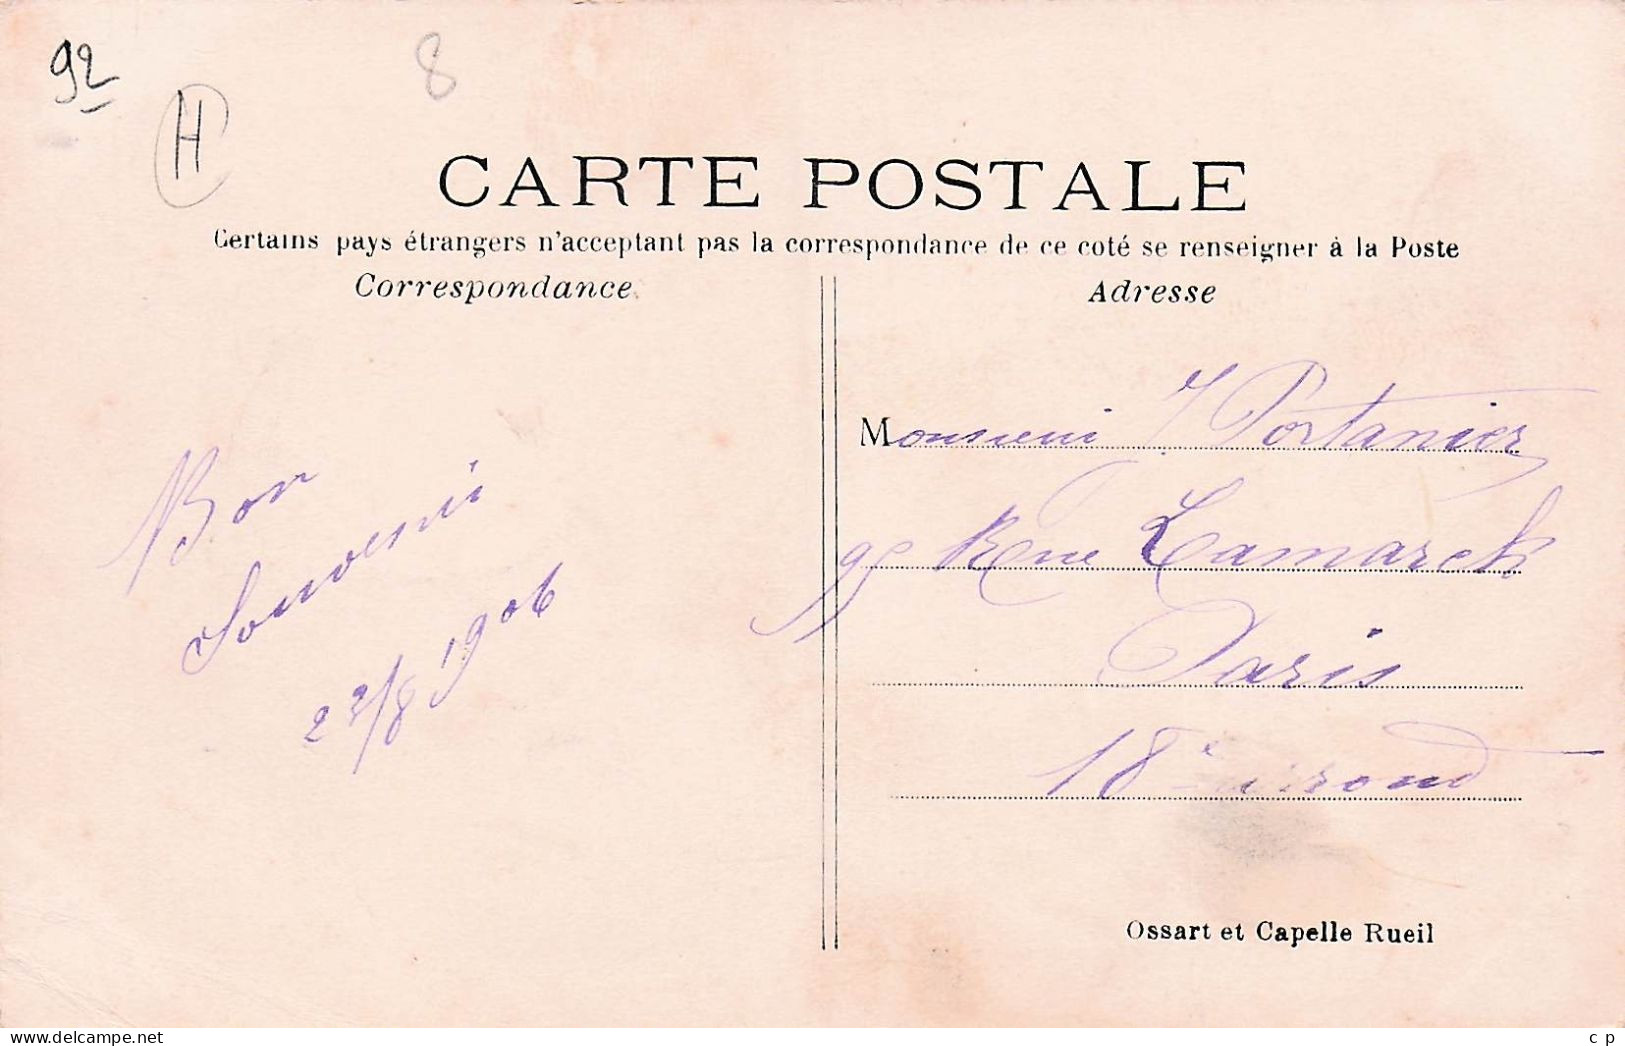 92
8
H
CARTE POSTALE
Certains pays étrangers n'acceptant pas la correspondance de ce coté se renseigner à la Poste
Correspondance
Adresse
Bon
Souvenir
22/8 1906
Monsieur J Portanier
Rue Lamarck
Paris
18e arrond
Ossart et Capelle Rueil
www.delcampe.net
c p